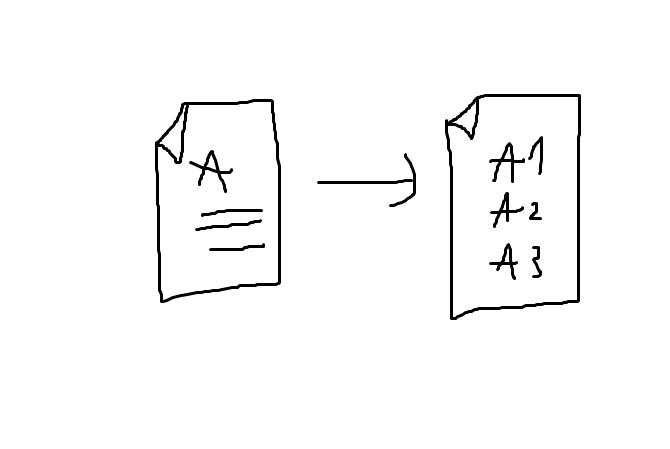 A
A1
A2
A3